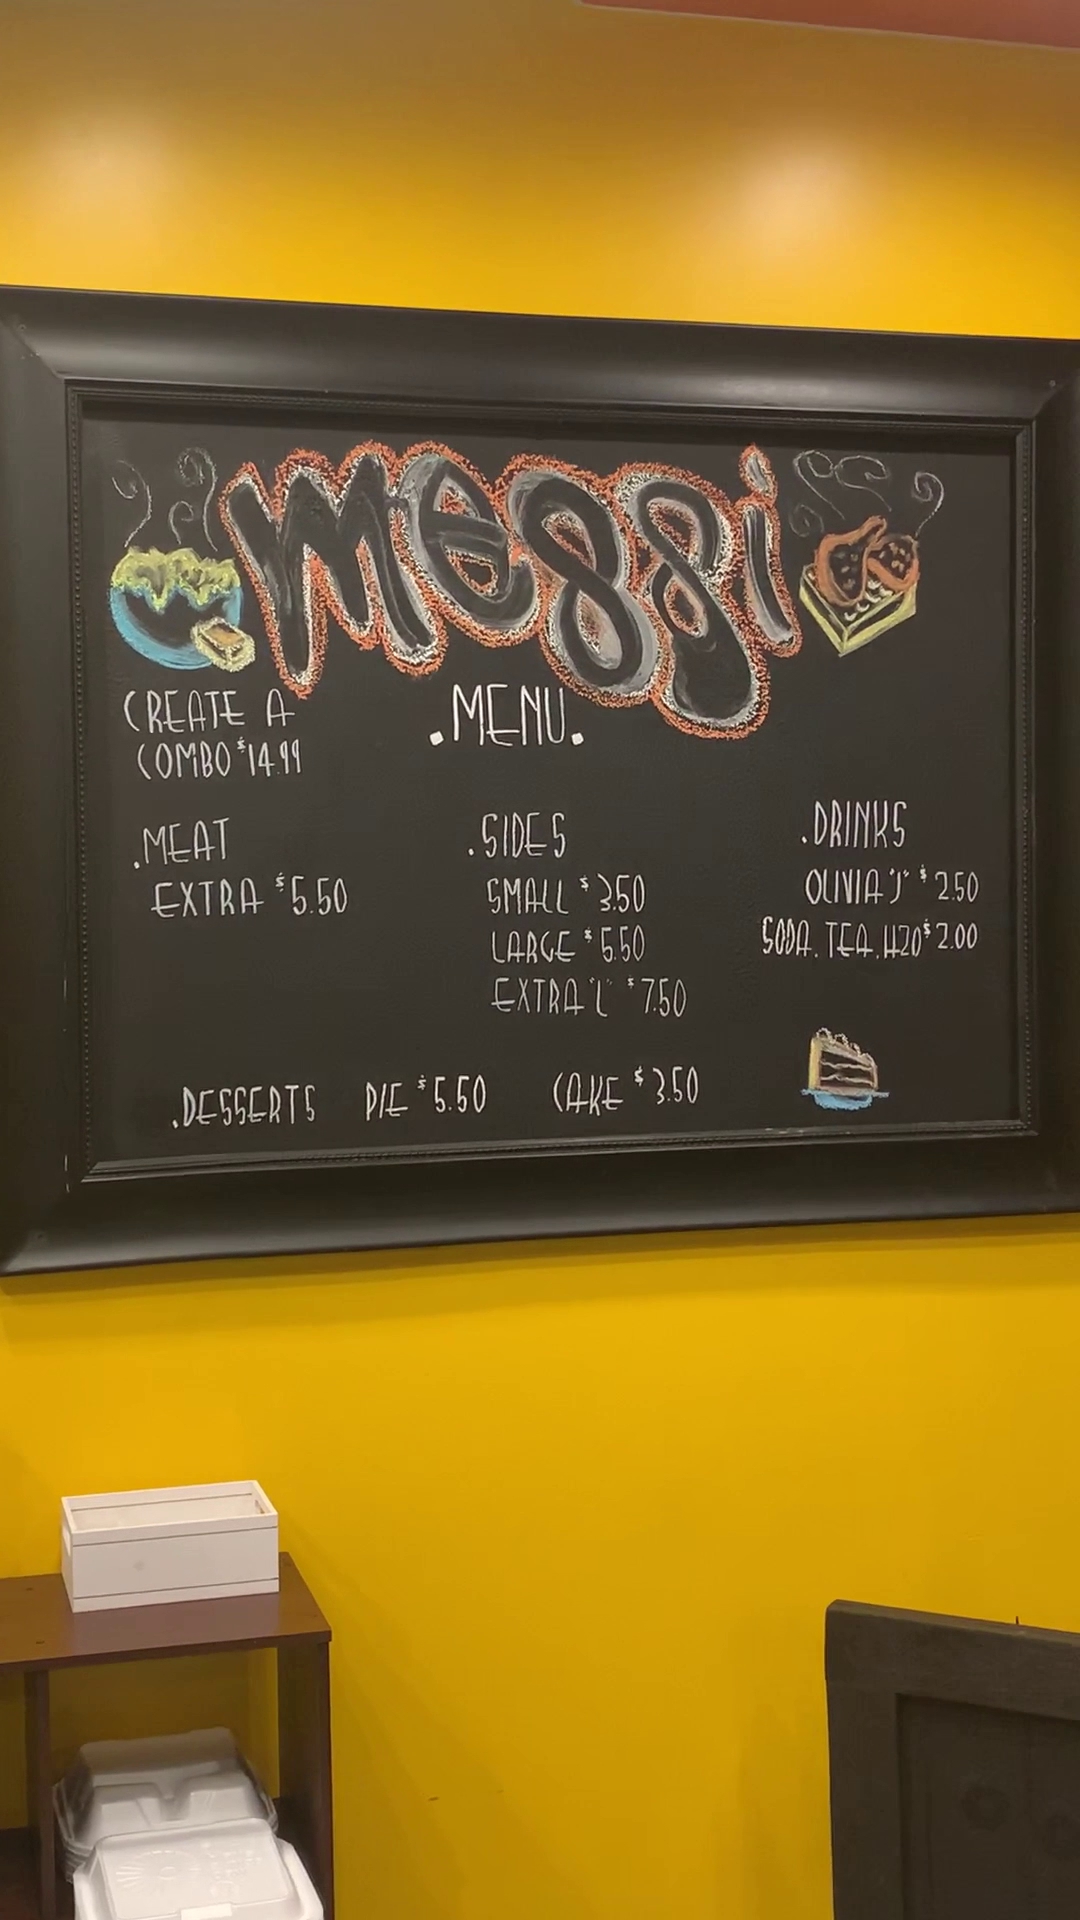 messi
.MENU.
CREATE A
COMBO $14.99
.MEAT
EXTRA $5.50
.SIDES
SMALL $3.50
LARGE $5.50
EXTRA "L" $7.50
.DRINKS
OLIVIA "J" $2.50
SODA. TEA. H20 $2.00
.DESSERTS PIE $5.50 CAKE $3.50